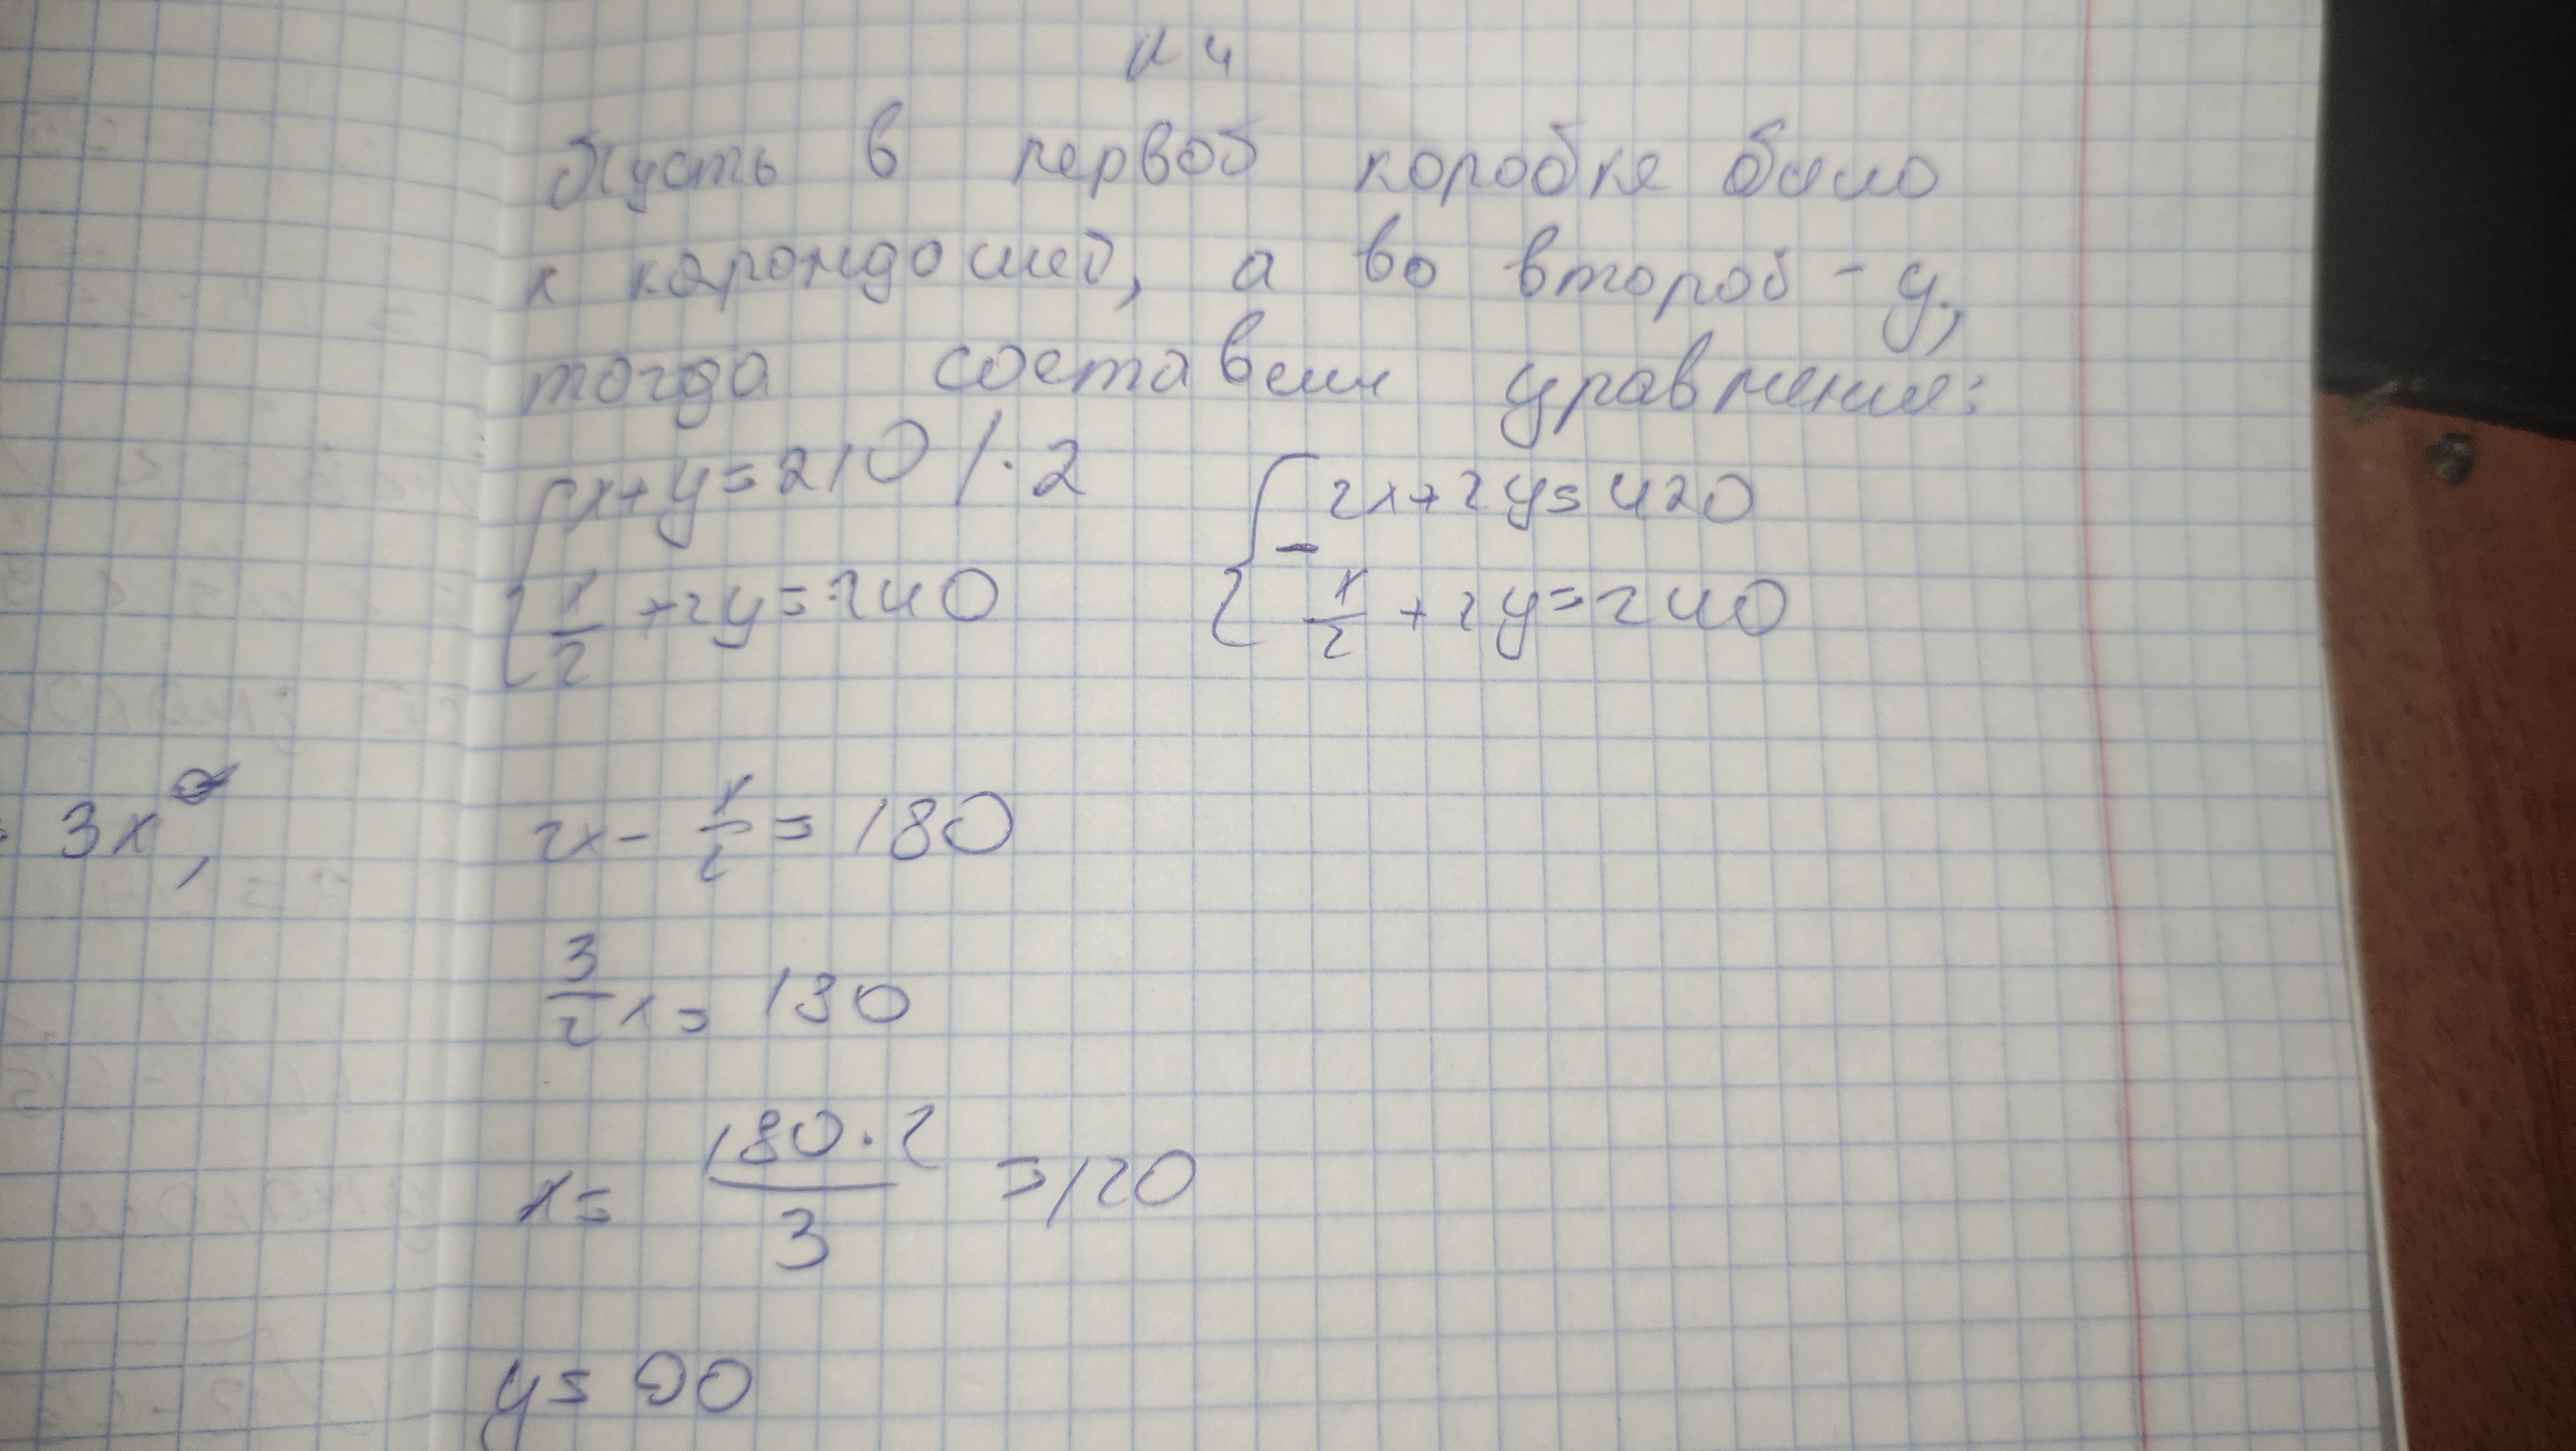 № 4
Пусть в первой коробке было
x карондошей, а во второй - y,
тогда составим уравнение:
x+y=210 /·2
x/2 +2y=240
2x+2y=420
-
x/2 +2y=240
3x,
2x- x/2 = 180
3/2 x= 130
x= 180·2/3 =120
y= 90